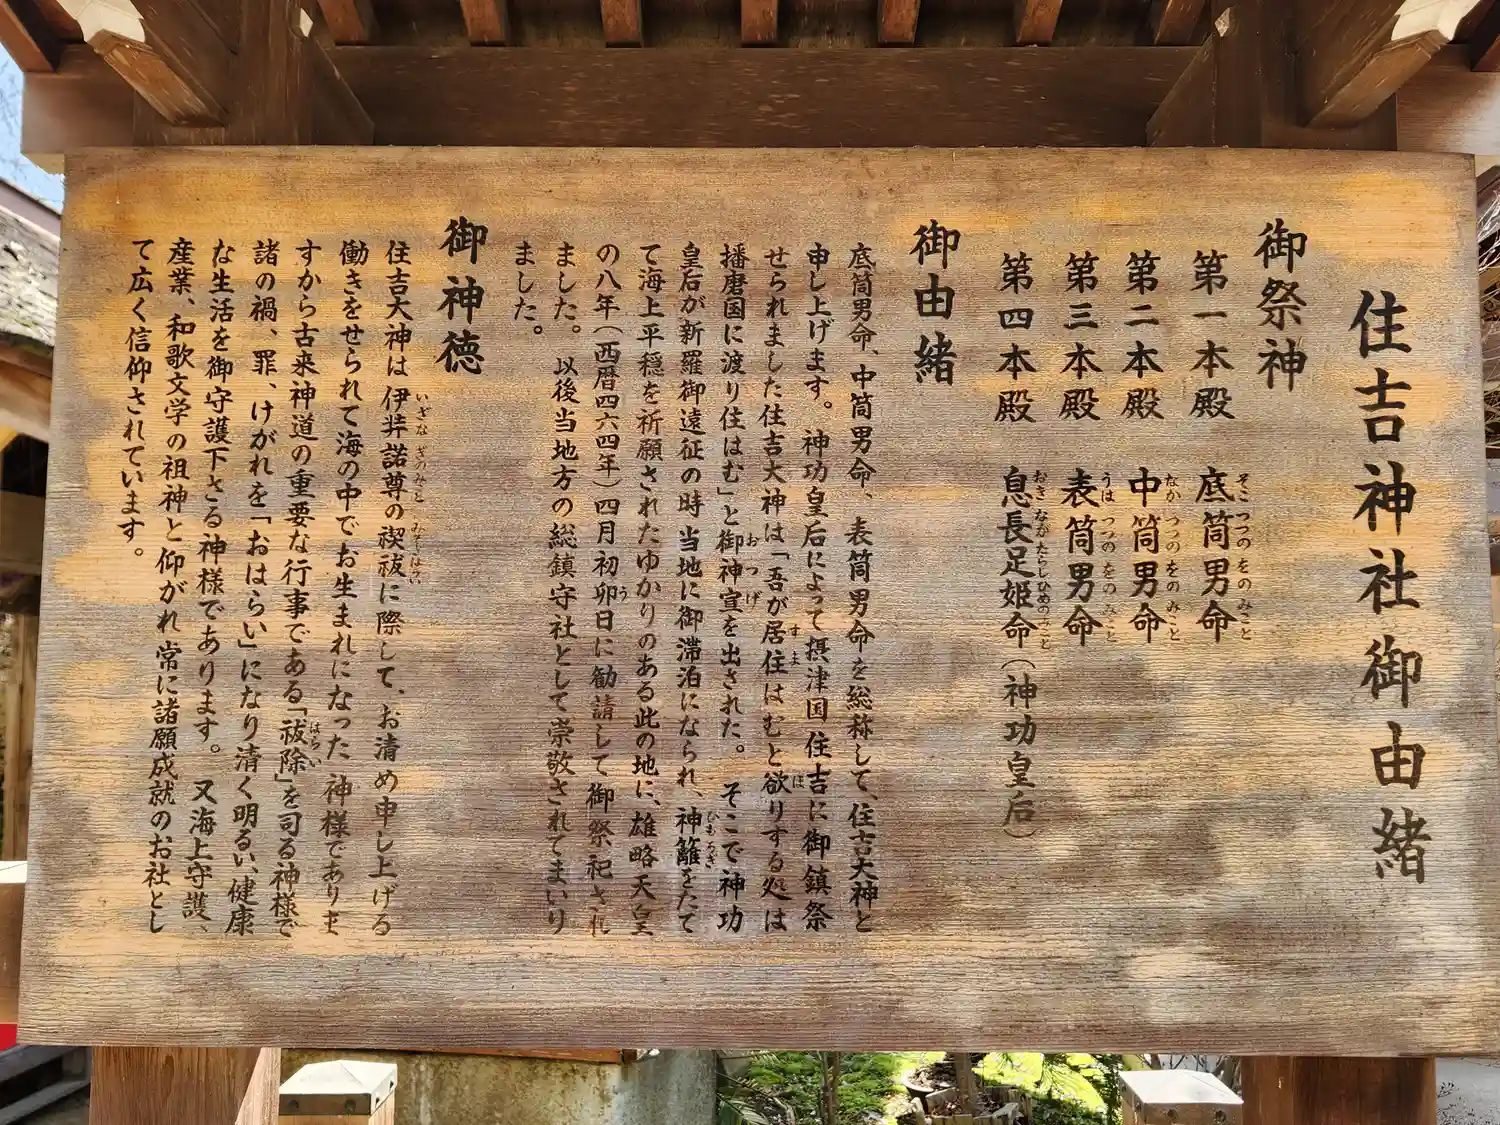 住吉神社御由緒
御祭神
第一本殿 底筒男命
そこつつのをのみこと
第二本殿 中筒男命
なかつつのをのみこと
第三本殿 表筒男命
うはつつのをのみこと
第四本殿 息長足姫命（神功皇后）
おきながたらしひめのみこと
御由緒
底筒男命、中筒男命、表筒男命を総称して、住吉大神と
申し上げます。神功皇后によって摂津国住吉に御鎮祭
せられました住吉大神は「吾が居住はむと欲りする処は
すま
ほ
播磨国に渡り住はむ」と御神宣を出された。そこで神功
おつげ
皇后が新羅御遠征の時当地に御滞泊になられ、神籬をたて
ひもろぎ
て海上平穏を祈願されたゆかりのある此の地に、雄略天皇
の八年（西暦四六四年）四月初卯日に勧請して御祭祀され
う
ました。以後当地方の総鎮守社として崇敬されてまいり
ました。
御神徳
住吉大神は伊弉諾尊の禊祓に際して、お清め申し上げる
いざなぎのみこと
みそぎはらい
働きをせられて海の中でお生まれになった神様でありま
すから古来神道の重要な行事である「祓除」を司る神様で
はらい
諸の禍、罪、けがれを「おはらい」になり清く明るい健康
な生活を御守護下さる神様であります。又海上守護、
産業、和歌文学の祖神と仰がれ常に諸願成就のお社とし
て広く信仰されています。